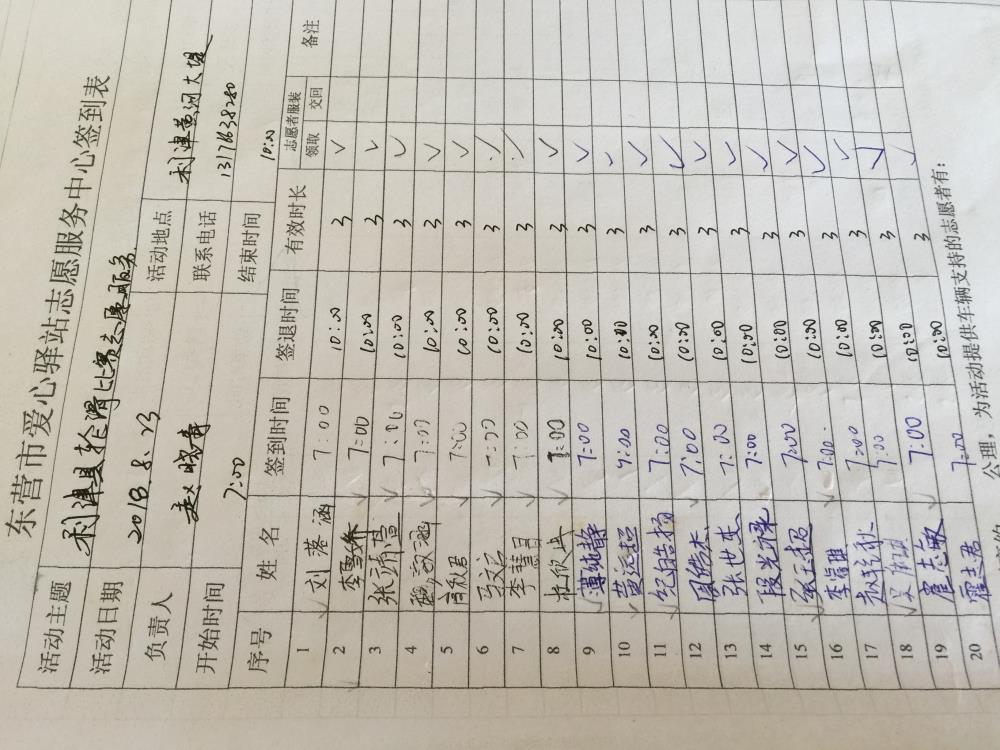 东营市爱心驿站志愿服务中心签到表
活动主题 利津县轮滑比赛志愿服务
活动日期 2018.8.23 活动地点 利津黄河大堤
负责人 赵晓青 联系电话 13176638280
开始时间 7:00 结束时间 10:00
序号 姓名 签到时间 签退时间 有效时长 志愿者服装 备注
领取 交回
1 刘落涵 7:00 10:00 3 ✓
2 李雪娇 7:00 10:00 3 ✓
3 张 7:00 10:00 3 ✓
4 魏 7:00 10:00 3 ✓
5 君 7:00 10:00 3 ✓
6 马文 7:00 10:00 3 ✓
7 李慧 7:00 10:00 3 ✓
8 杜欣 7:00 10:00 3 ✓
9 薄纯静 7:00 10:00 3 ✓
10 黄远超 7:00 10:00 3 ✓
11 纪浩扬 7:00 10:00 3 ✓
12 周皓杰 7:00 10:00 3 ✓
13 张世 7:00 10:00 3 ✓
14 段光 7:00 10:00 3 ✓
15 张玉超 7:00 10:00 3 ✓
16 李 7:00 10:00 3 ✓
17 赵 7:00 10:00 3 ✓
18 吴 7:00 10:00 3 ✓
19 翟志敏 7:00 10:00 3 ✓
20 霍志君 7:00 10:00 3
公理，为活动提供车辆支持的志愿者有：